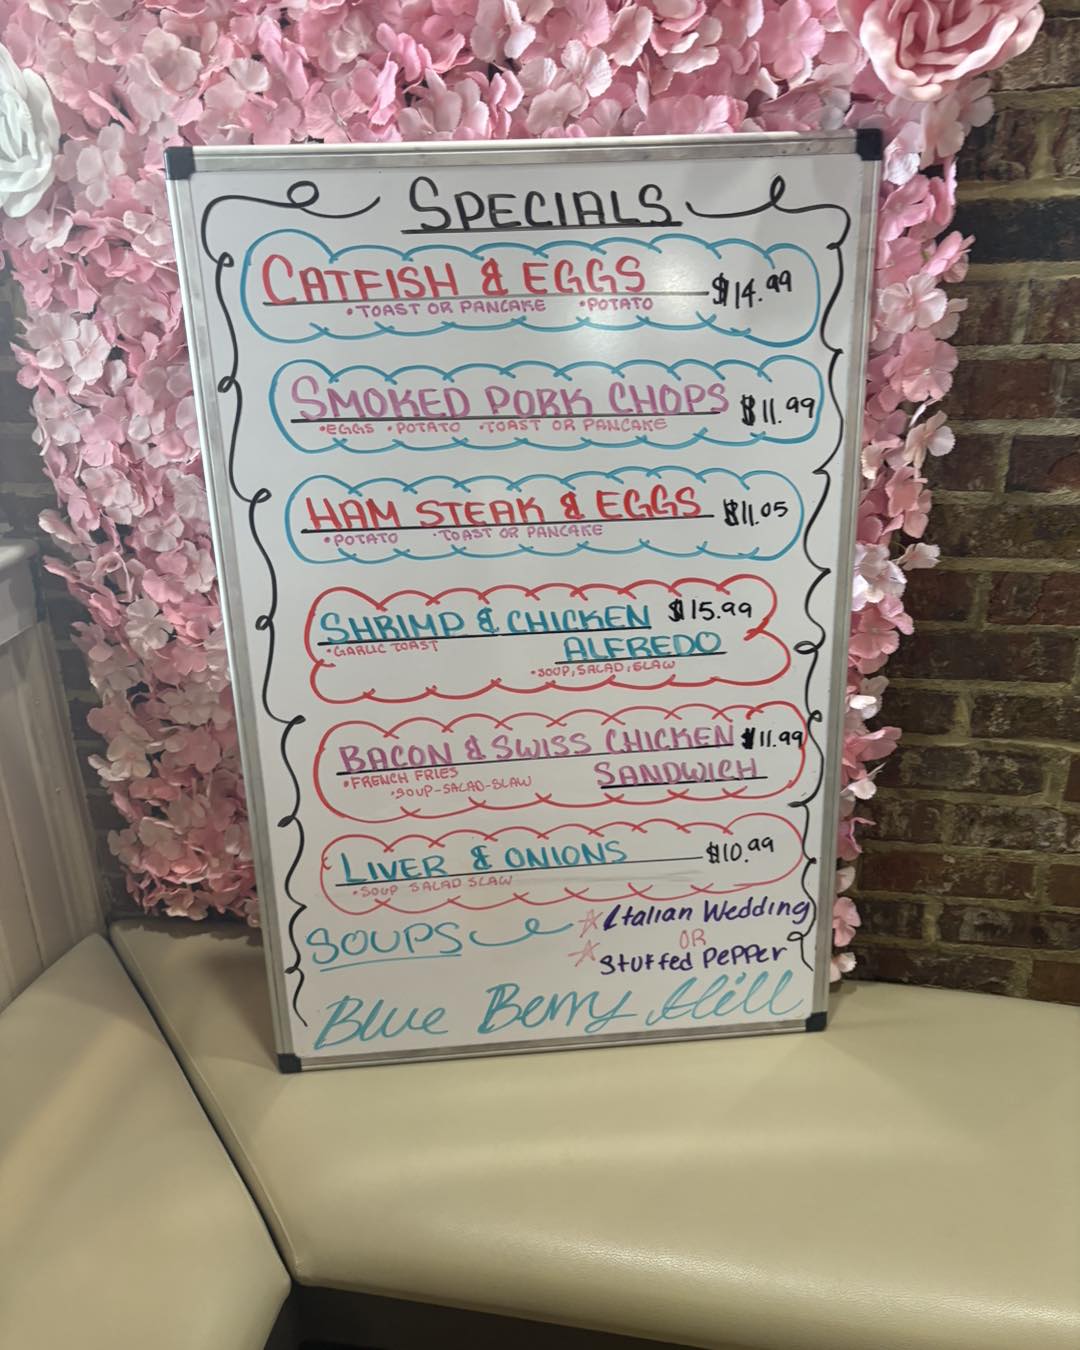 SPECIALS
CATFISH & EGGS $14.99
•TOAST OR PANCAKE •POTATO
SMOKED PORK CHOPS $11.99
•EGGS •POTATO •TOAST OR PANCAKE
HAM STEAK & EGGS $11.05
•POTATO •TOAST OR PANCAKE
SHRIMP & CHICKEN $15.99
•GARLIC TOAST ALFREDO
•SOUP, SALAD, SLAW
BACON & SWISS CHICKEN $11.99
•FRENCH FRIES SANDWICH
•SOUP-SALAD-SLAW
LIVER & ONIONS $10.99
•SOUP SALAD SLAW
SOUPS Italian Wedding
OR
Stuffed Pepper
Blue Berry Hill